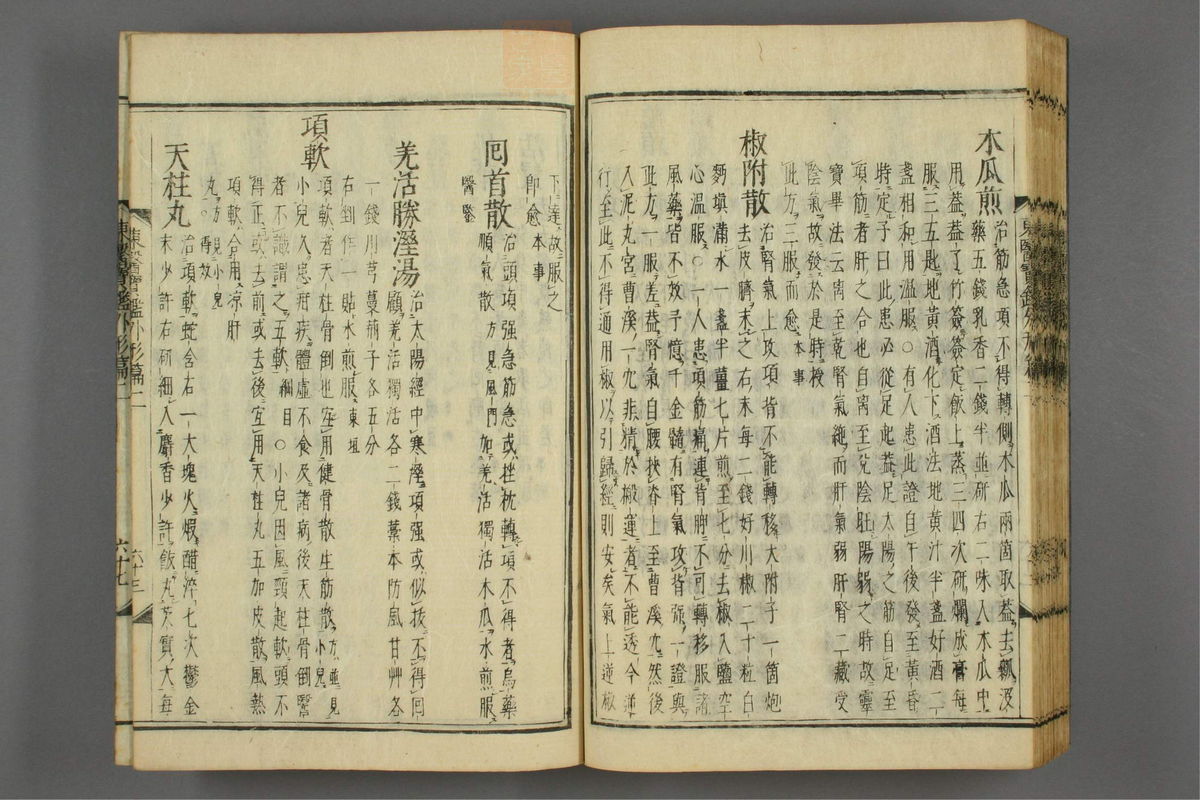 木瓜煎 治筋急項不得轉側木瓜兩箇取蓋去瓤沒
藥五錢乳香二錢半並研右二味入木瓜中
用蓋蓋了竹簽簽定飯上蒸三四次研爛成膏每
服三五匙地黃酒化下酒法地黃汁半盞好酒二
盞相和用溫服○有人患此證自午後發至黃昏
時定予曰此患必從足起蓋足太陽之筋自足至
項筋者肝之合也自离至兌陰旺陽弱之時故靈
寶畢法云离至乾腎氣絶而肝氣弱肝腎二藏受
陰氣故發於是時授
此方三服而愈本事
椒附散 治腎氣上攻項背不能轉移大附子一箇炮
去皮臍末之右末每二錢好川椒二十粒白
麪塡滿水一盞半薑七片煎至七分去椒入鹽空
心溫服○一人患項筋痛連背胛不可轉移服諸
風藥皆不效予憶千金髓有腎氣攻背强一證與
此方一服差蓋腎氣自腰挾脊上至曹溪穴然後
入泥丸宮曹溪一穴非精於搬運者不能透今逆
行至此不得通用椒以引歸經則安矣氣上逆椒
下達故服之
卽愈本事
囘首散 治頭項强急筋急或挫枕轉項不得者烏藥
順氣散方見風門加羌活獨活木瓜水煎服
醫鑒
羌活勝溼湯 治太陽經中寒溼項强或似拔不得囘
顧羌活獨活各二錢藁本防風甘艸各
一錢川芎蔓荊子各五分
右剉作一貼水煎服東垣
項軟
項軟者天柱骨倒也宜用健骨散生筋散方並見小兒
小兒久患疳疾體虛不食及諸病後天柱骨倒醫
者不識謂之五軟綱目○小兒因風頸起軟頭不
得正或去前或去後宜用天柱丸五加皮散風熱
項軟合用凉肝
丸方見小兒○得效
天柱丸 治項軟蛇含石一大塊火煆醋淬七次鬱金
末少許右硏細入麝香少許飯丸芡實大每
東醫寶鑑外形篇二
六十三